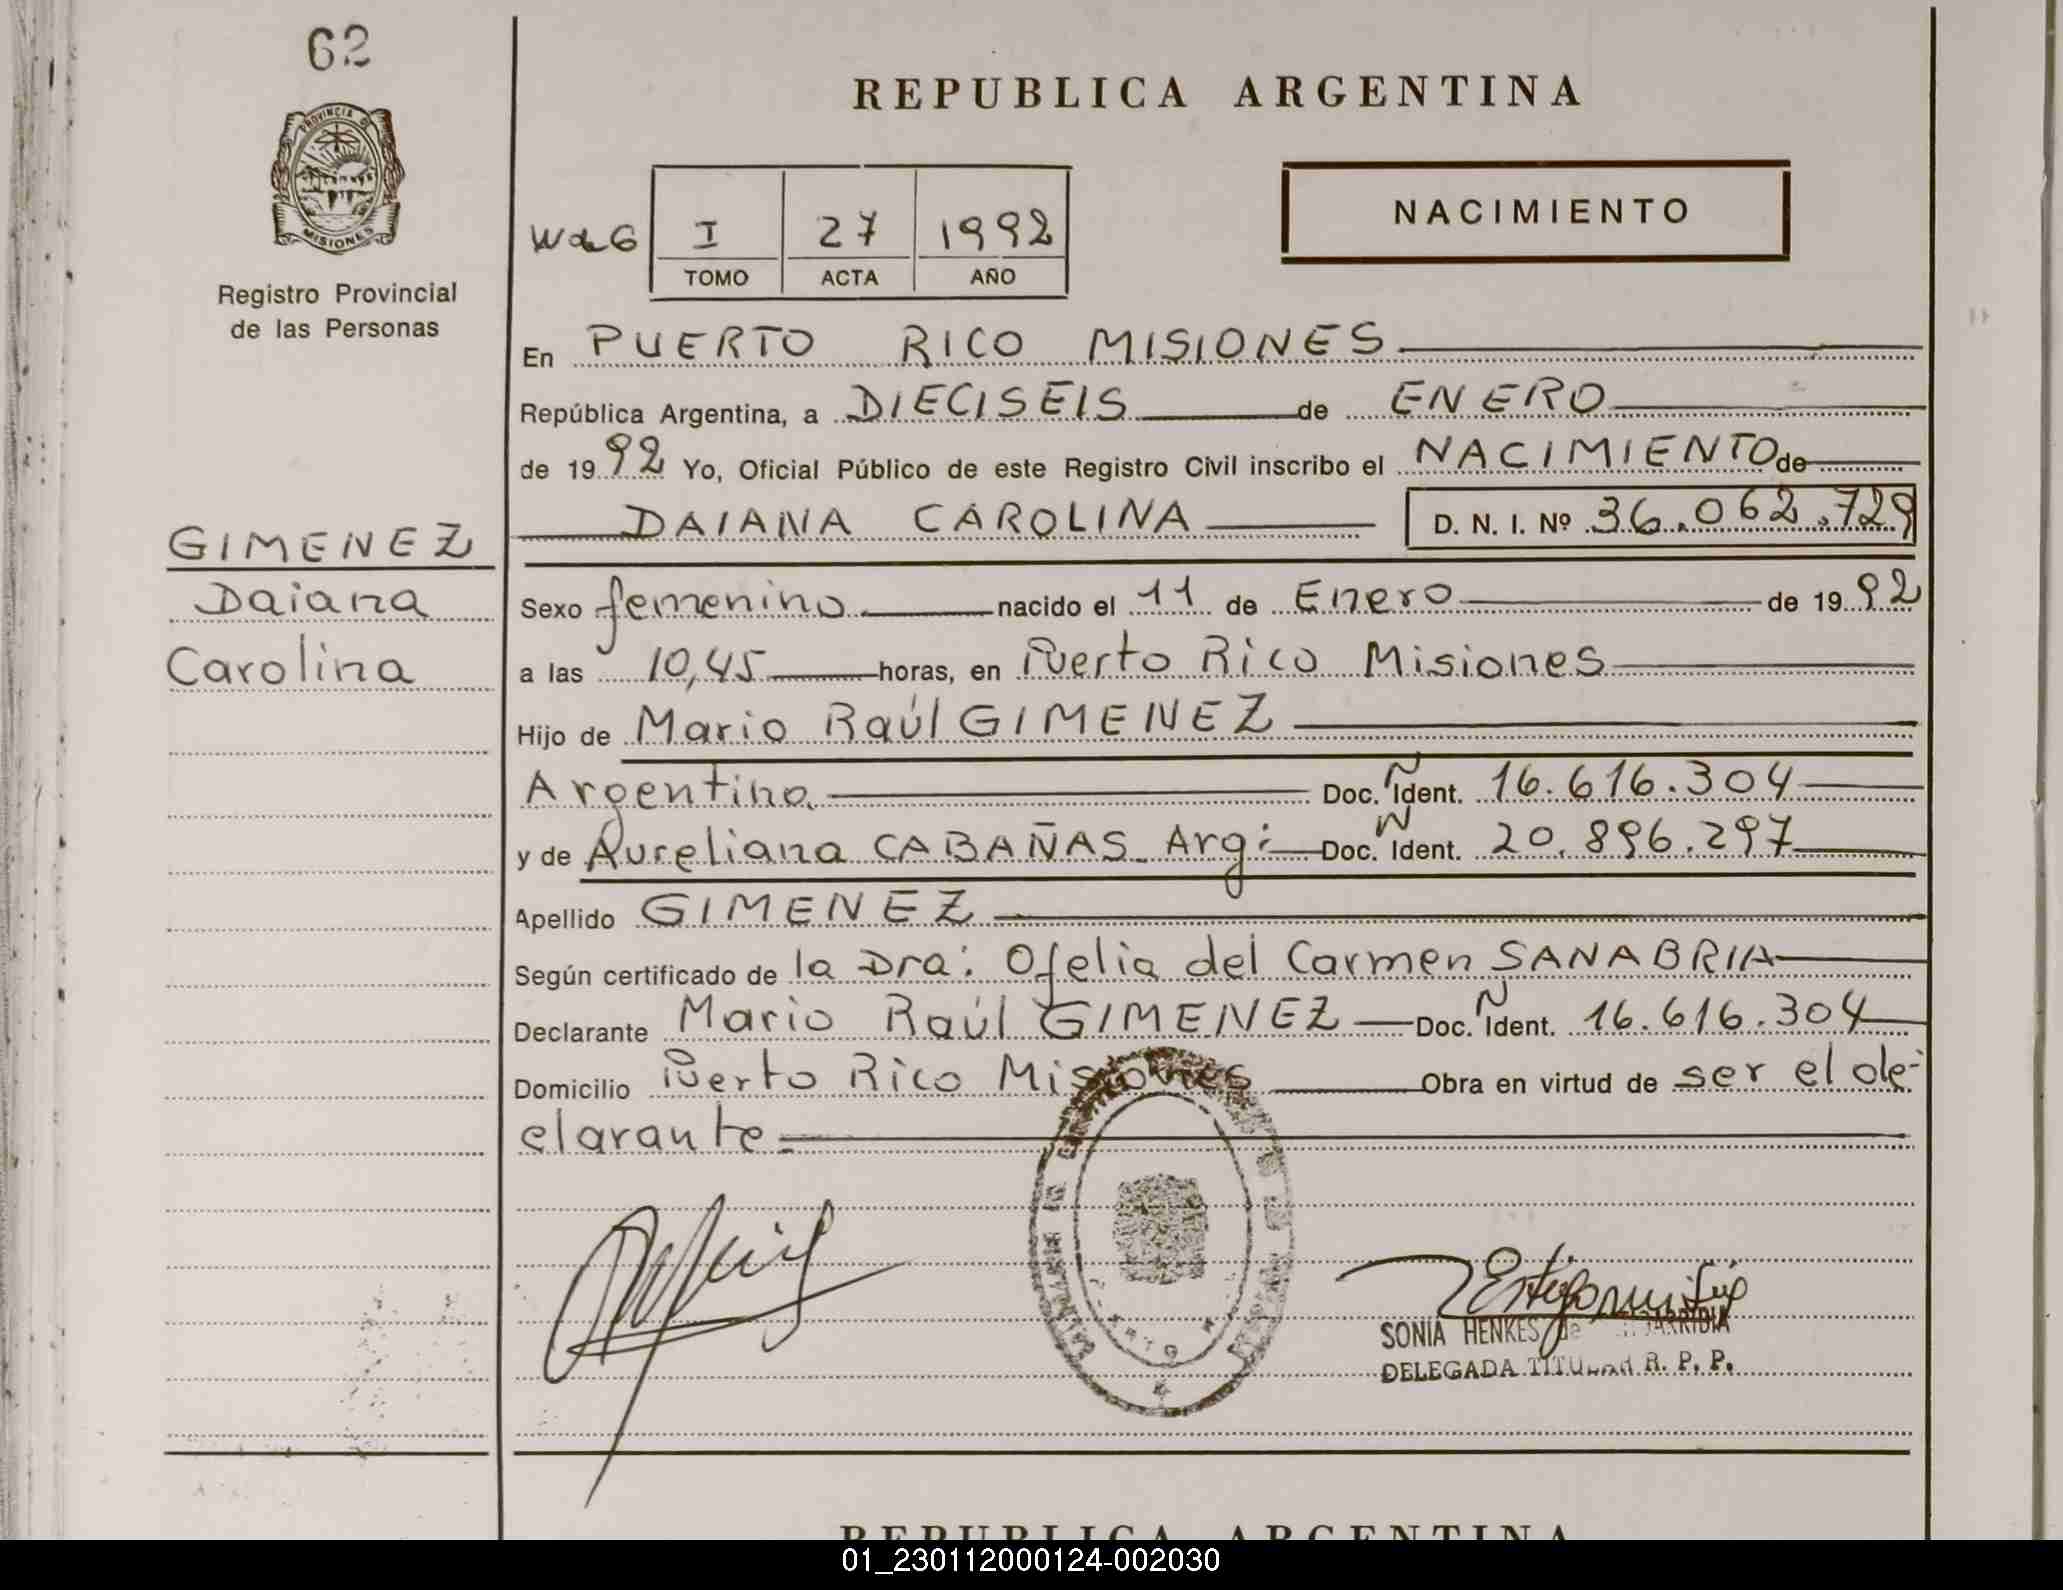 62
PROVINCIA DE
MISIONES
Registro Provincial
de las Personas
GIMENEZ
Daiana
Carolina
REPUBLICA ARGENTINA
WdeG I 27 1992
TOMO ACTA AÑO
NACIMIENTO
En PUERTO RICO MISIONES
República Argentina, a DIECISEIS de ENERO
de 1992 Yo, Oficial Público de este Registro Civil inscribo el NACIMIENTO de
DAIANA CAROLINA D. N. I. Nº 36.062.729
Sexo femenino nacido el 11 de Enero de 1992
a las 10,45 horas, en Puerto Rico Misiones
Hijo de Mario Raúl GIMENEZ
Argentino. Doc. N Ident. 16.616.304
y de Aureliana CABAÑAS. Arg: Doc. N Ident. 20.896.297
Apellido GIMENEZ
Según certificado de la Dra: Ofelia del Carmen SANABRIA
Declarante Mario Raúl GIMENEZ Doc. N Ident. 16.616.304
Domicilio Puerto Rico Misiones Obra en virtud de ser el de-
clarante
SONIA HENKES de
DELEGADA TITULAR R. P. P.
REPUBLICA ARGENTINA
01_230112000124-002030